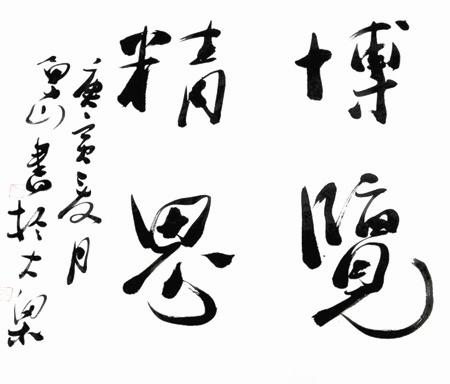 博覽
精思
庚寅夏月
山書於大梁